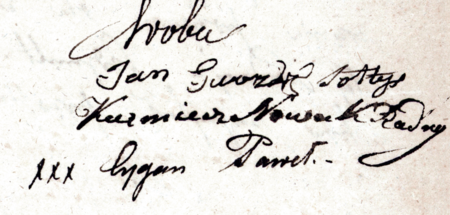 Jan Gwoźdź sołtys
Kazmierz Nowak Radny
xxx Cygan Paweł.